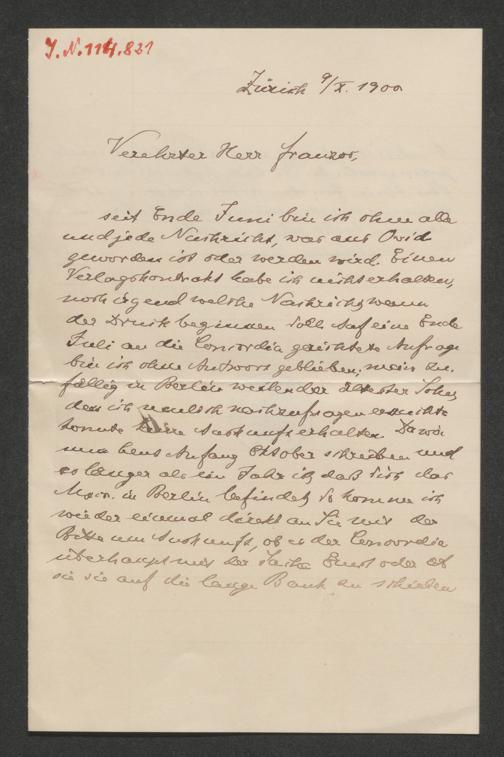 J.N.114.821
Zürich 9/X. 1900
Verehrter Herr Franzos,
seit Ende Juni bin ich ohne alle
und jede Nachricht, was aus Ovid
geworden ist oder werden wird. Einen
Verlagskontrakt habe ich nicht erhalten,
noch irgend welche Nachricht, wann
der Druck beginnen soll. Auf eine Ende
Juli an die Concordia gerichtete Anfrage
bin ich ohne Antwort geblieben; mein zu-
fällig in Berlin weilender ältester Sohn,
den ich neulich nachzufragen ersuchte
konnte keine Auskunft erhalten. Da wir
nunmehr Anfang Oktober schreiben und
es länger als ein Jahr ist, daß sich das
Mscr. in Berlin befindet, so komme ich
wieder einmal direkt an Sie mit der
Bitte um Auskunft, ob es der Concordia
überhaupt mit der Sache Ernst oder ob
sie sie auf die lange Bank zu schieben